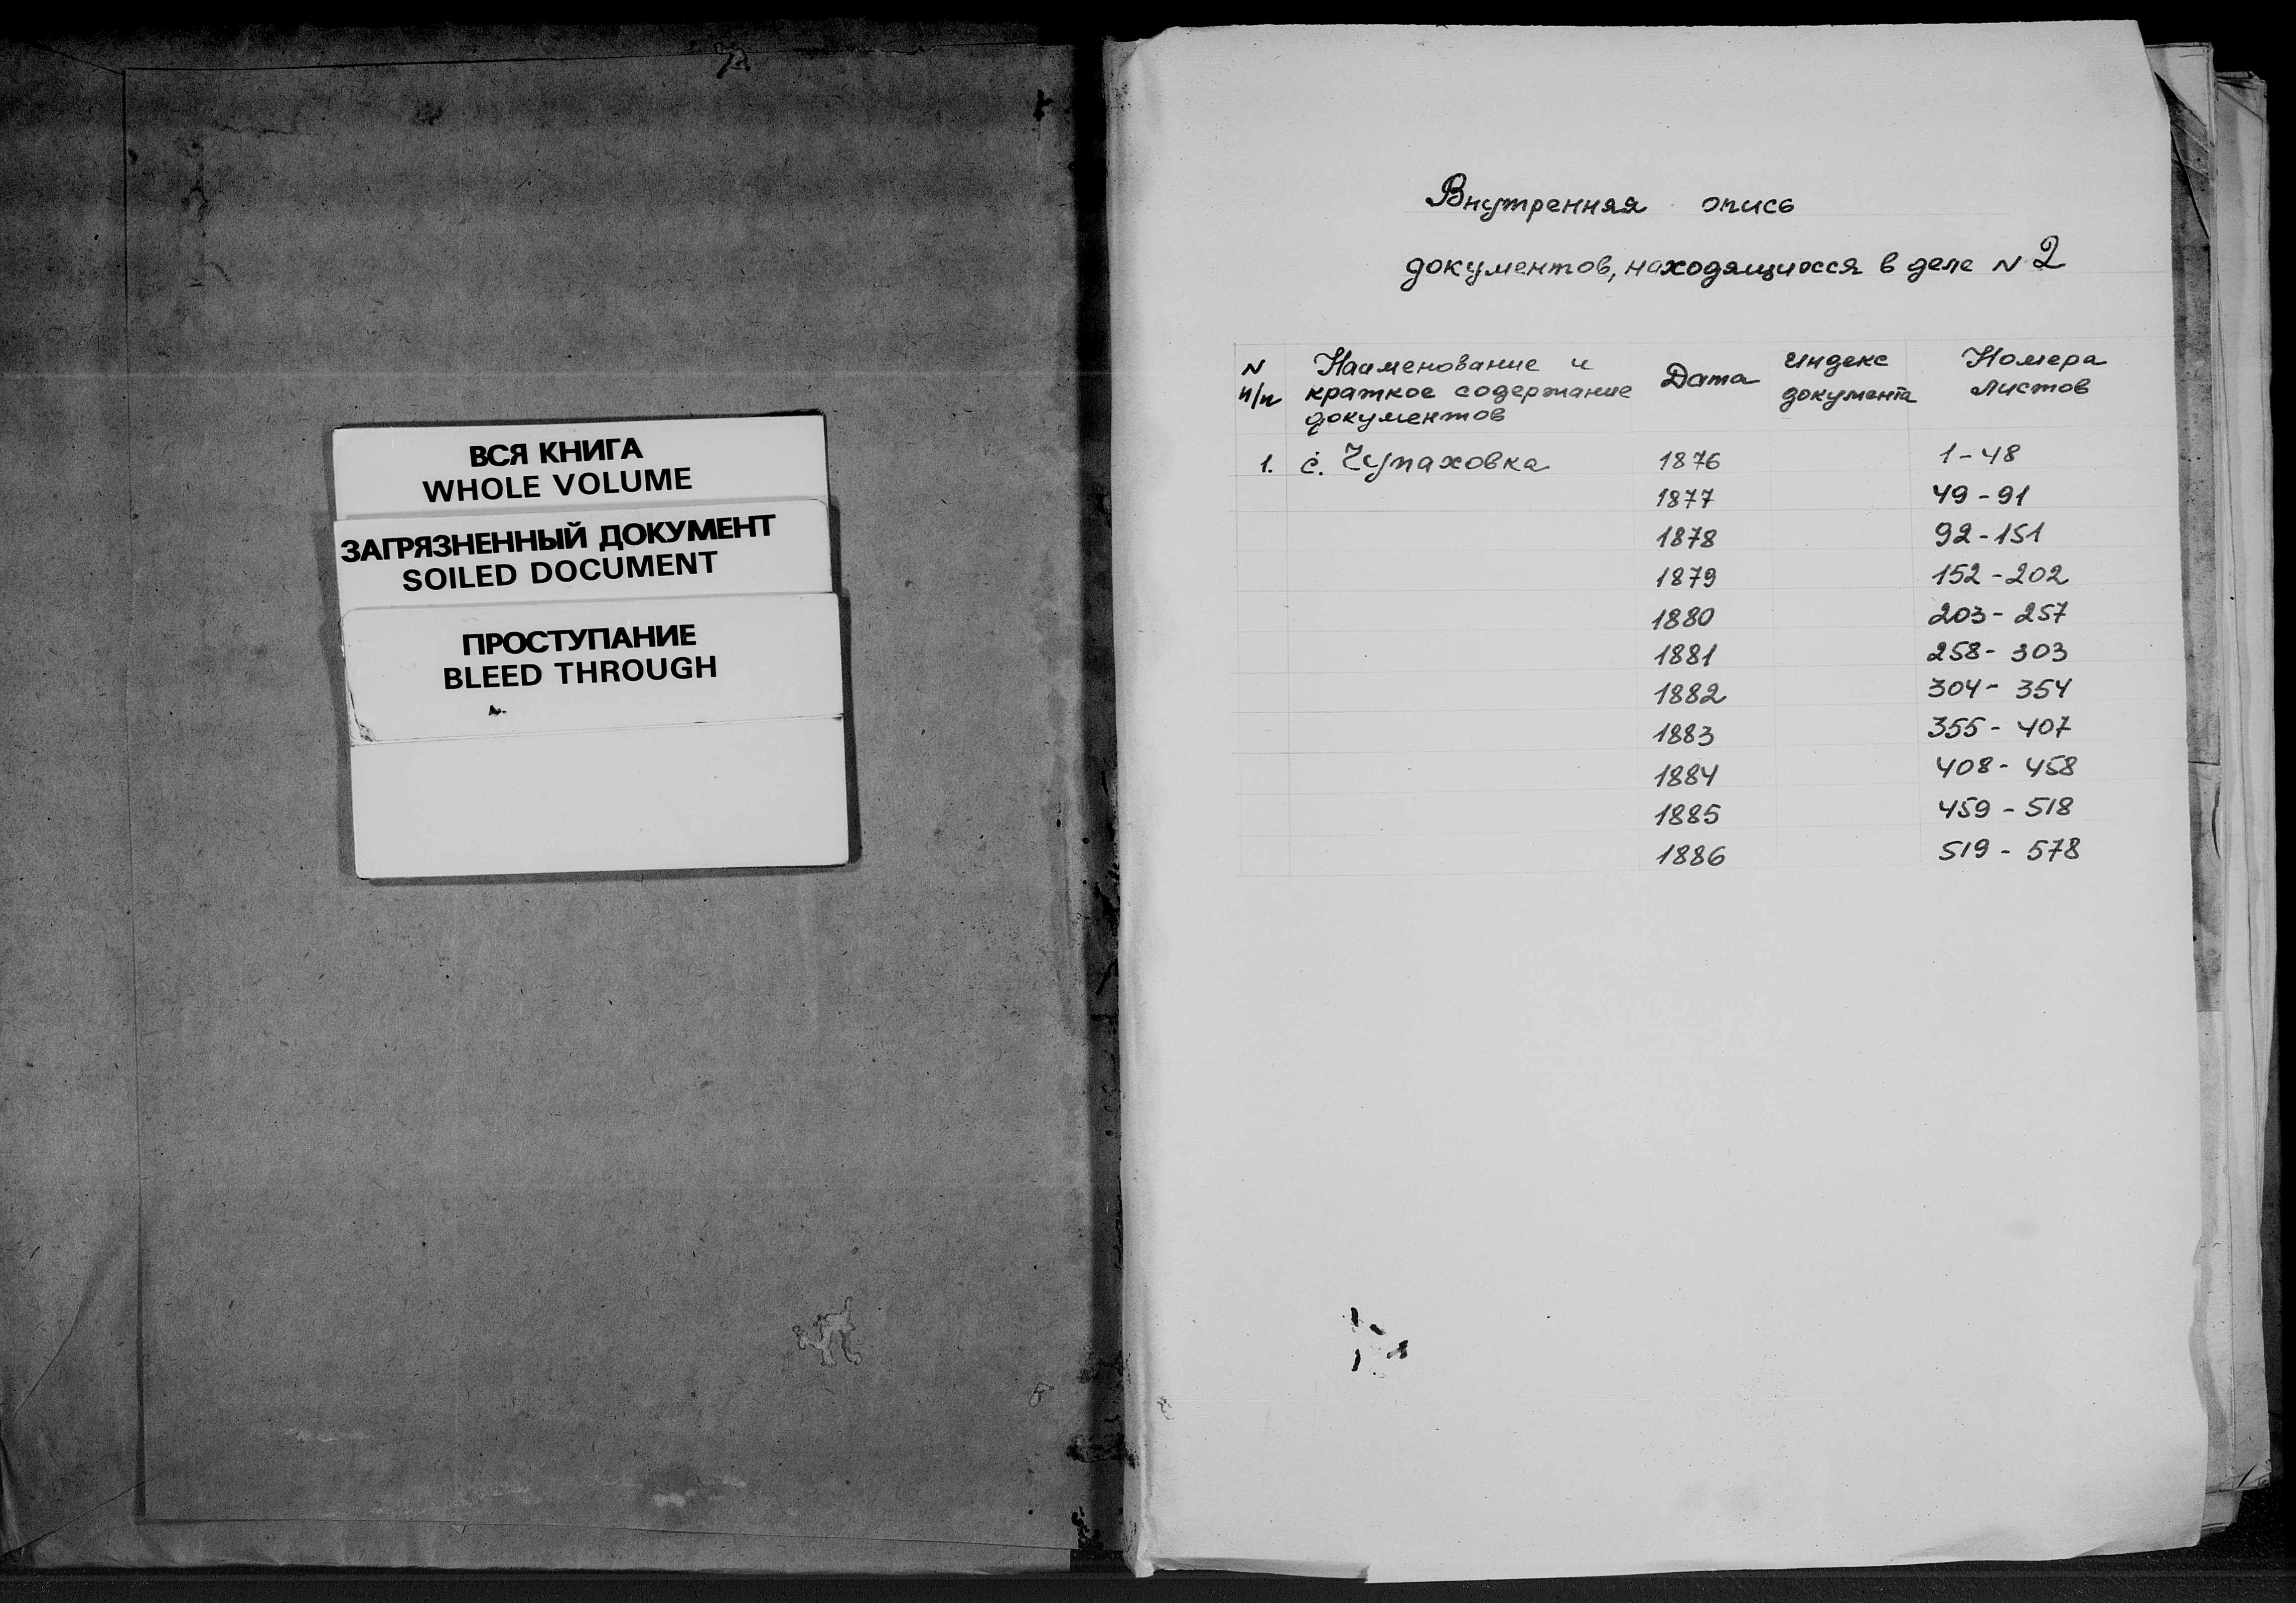 ВСЯ КНИГА
WHOLE VOLUME
ЗАГРЯЗНЕННЫЙ ДОКУМЕНТ
SOILED DOCUMENT
ПРОСТУПАНИЕ
BLEED THROUGH
Внутренняя опись
документов, находящихся в деле N 2
N п/п Наименование и краткое содержание документов Дата индекс документа Номера листов
1. с. Чупаховка 1876 1-48
1877 49-91
1878 92-151
1879 152-202
1880 203-257
1881 258-303
1882 304-354
1883 355-407
1884 408-458
1885 459-518
1886 519-578